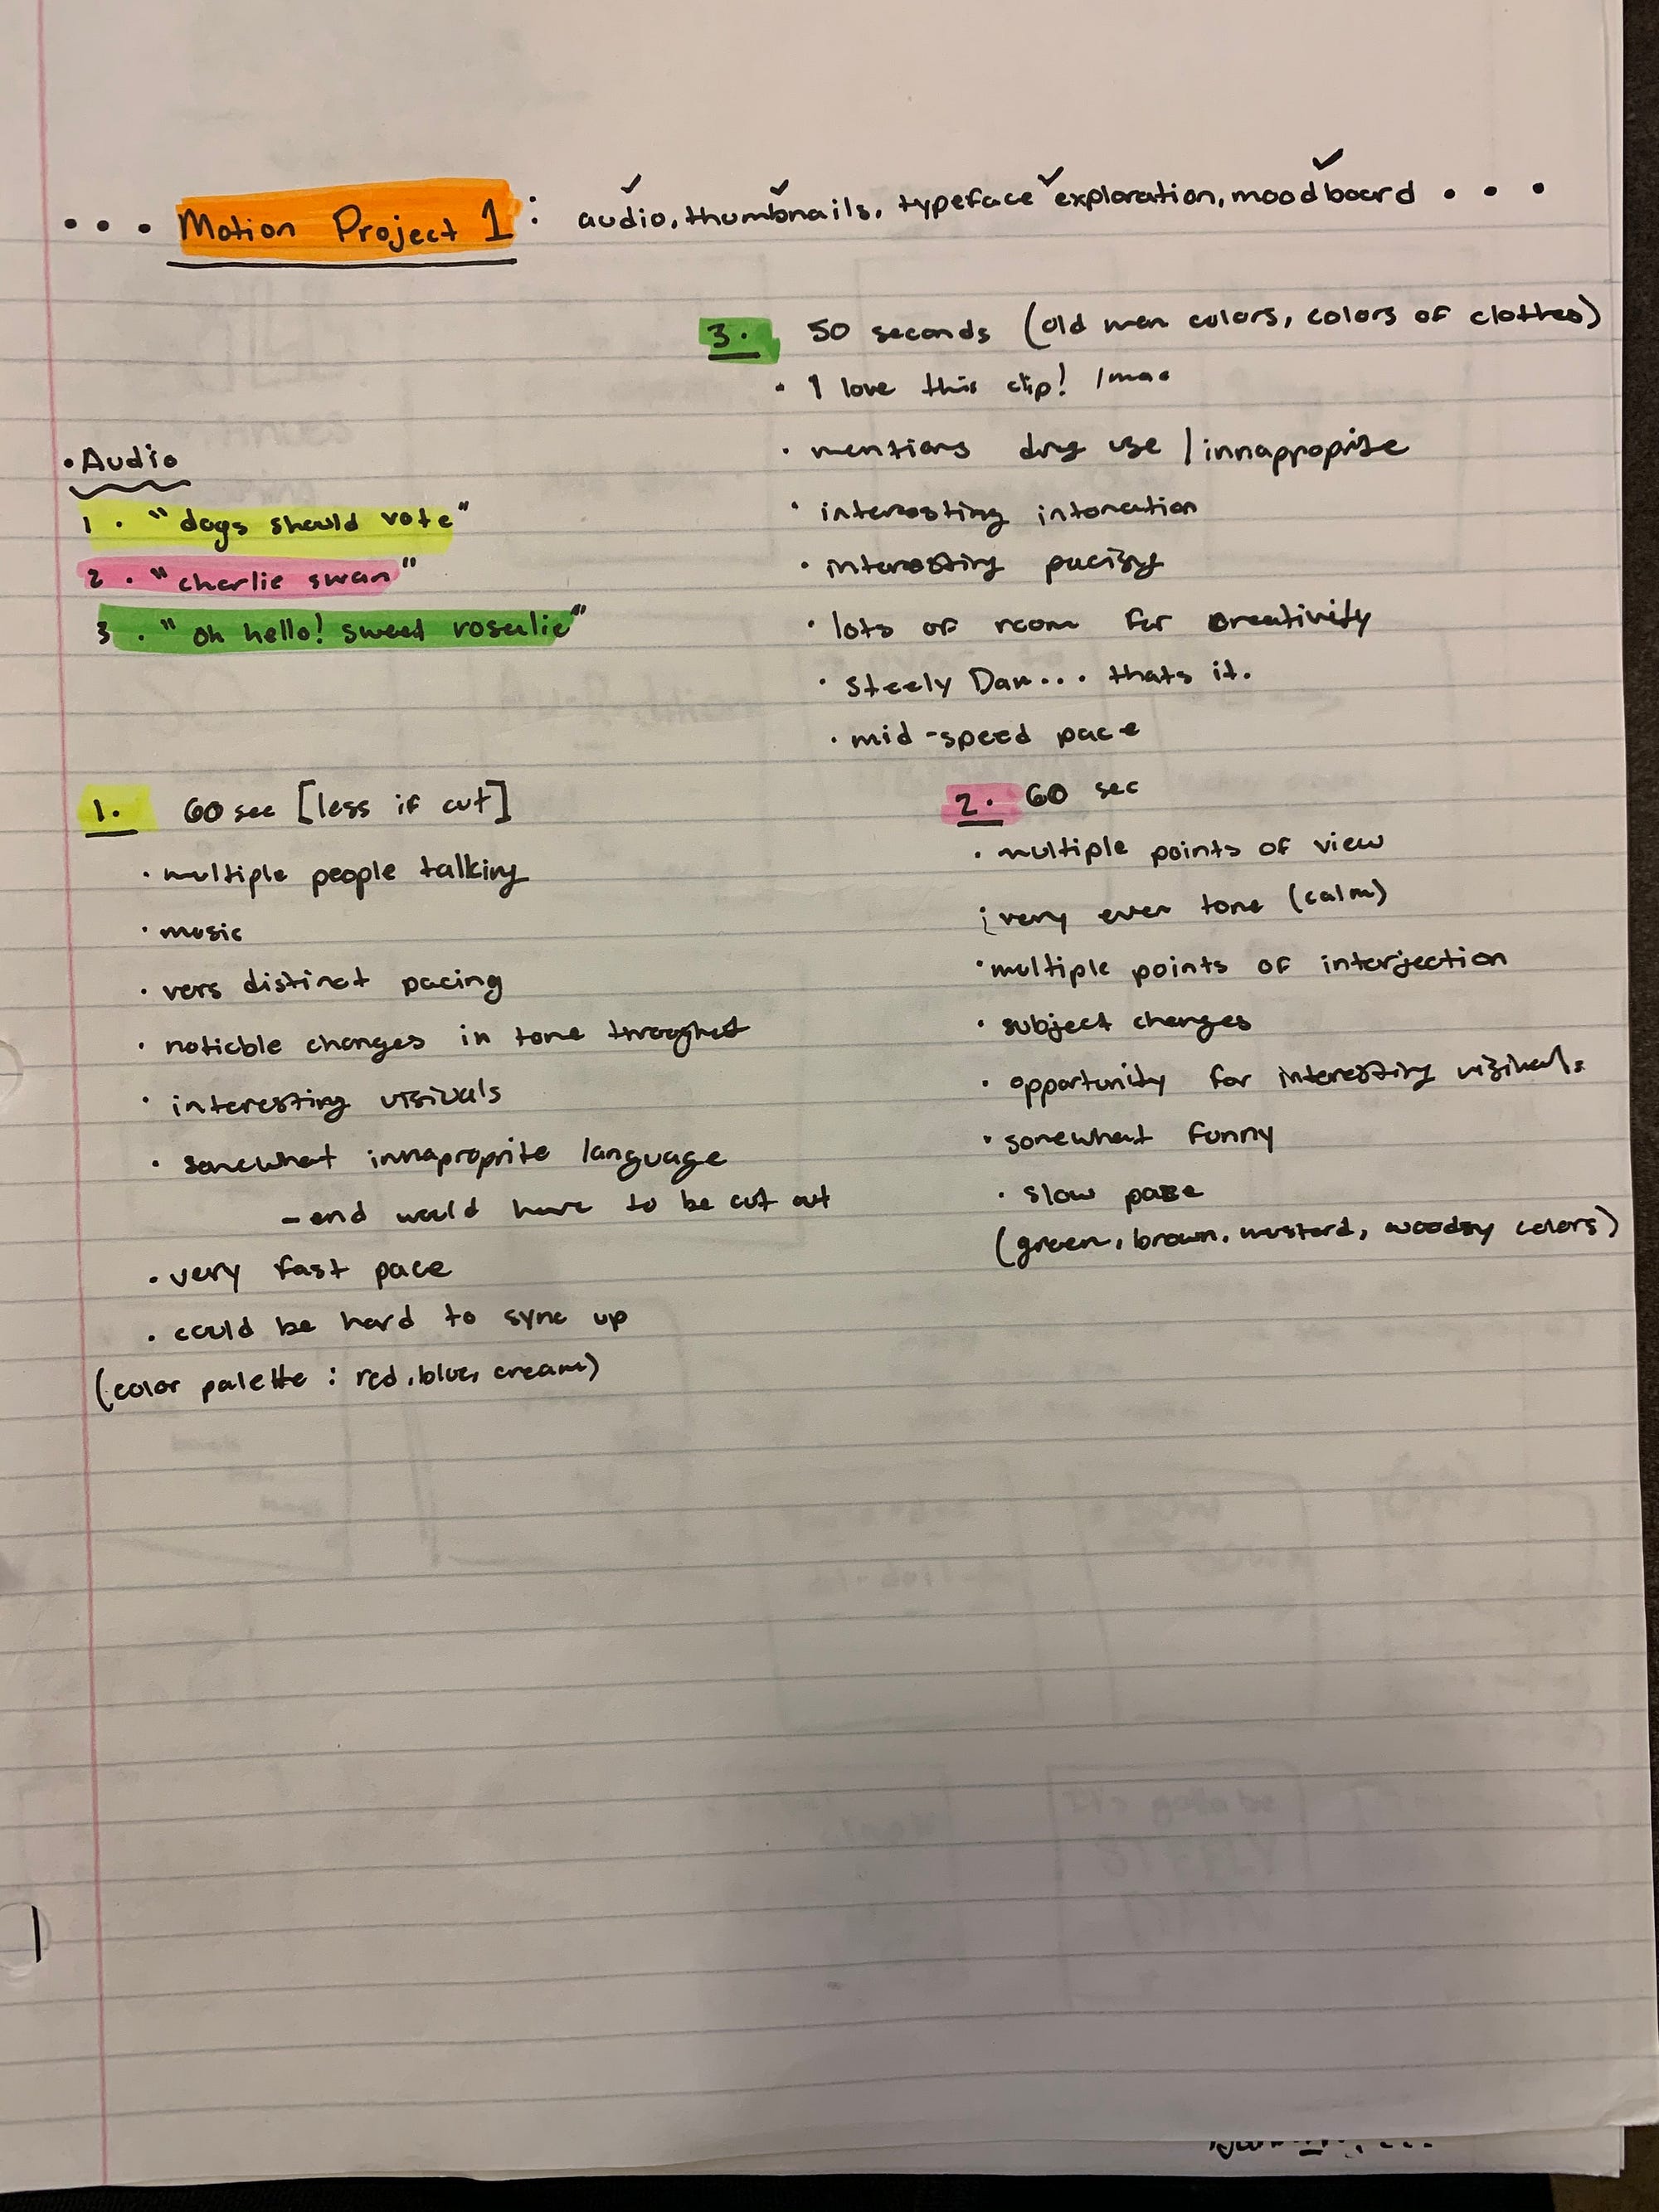 ... Motion Project 1 : audio, thumbnails, typeface exploration, moodboard ...
• Audio
1. "dogs should vote"
2. "charlie swan"
3. "oh hello! sweet rosalie"
3. 50 seconds (old men colors, colors of clothes)
• I love this clip!
• mentions drug use / innapproprite
• interesting intonation
• interesting pacing
• lots of room for creativity
• Steely Dan... thats it.
• mid-speed pace
1. 60 sec [less if cut]
• multiple people talking
• music
• vers distinct pacing
• noticble changes in tone
• interesting visivals
• somewhat innaproprite language
- end would have to be cut out
• very fast pace
• could be hard to sync up
(color palette : red, blue, cream)
2. 60 sec
• multiple points of view
• very even tone (calm)
• multiple points of interjection
• subject changes
• opportunity for interesting
• somewhat funny
• slow pace
(green, brown, mustard, woodsy colors)